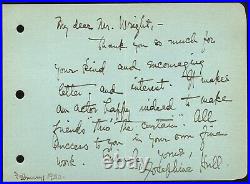 My dear Mr. Wright,-
Thank you so much for
your kind and encouraging
letter, and interest. It makes
an actor happy indeed to make
friends "thro the curtain". All
success to you in your own fine
work.
Yours,
Josephine Hull
February 1942